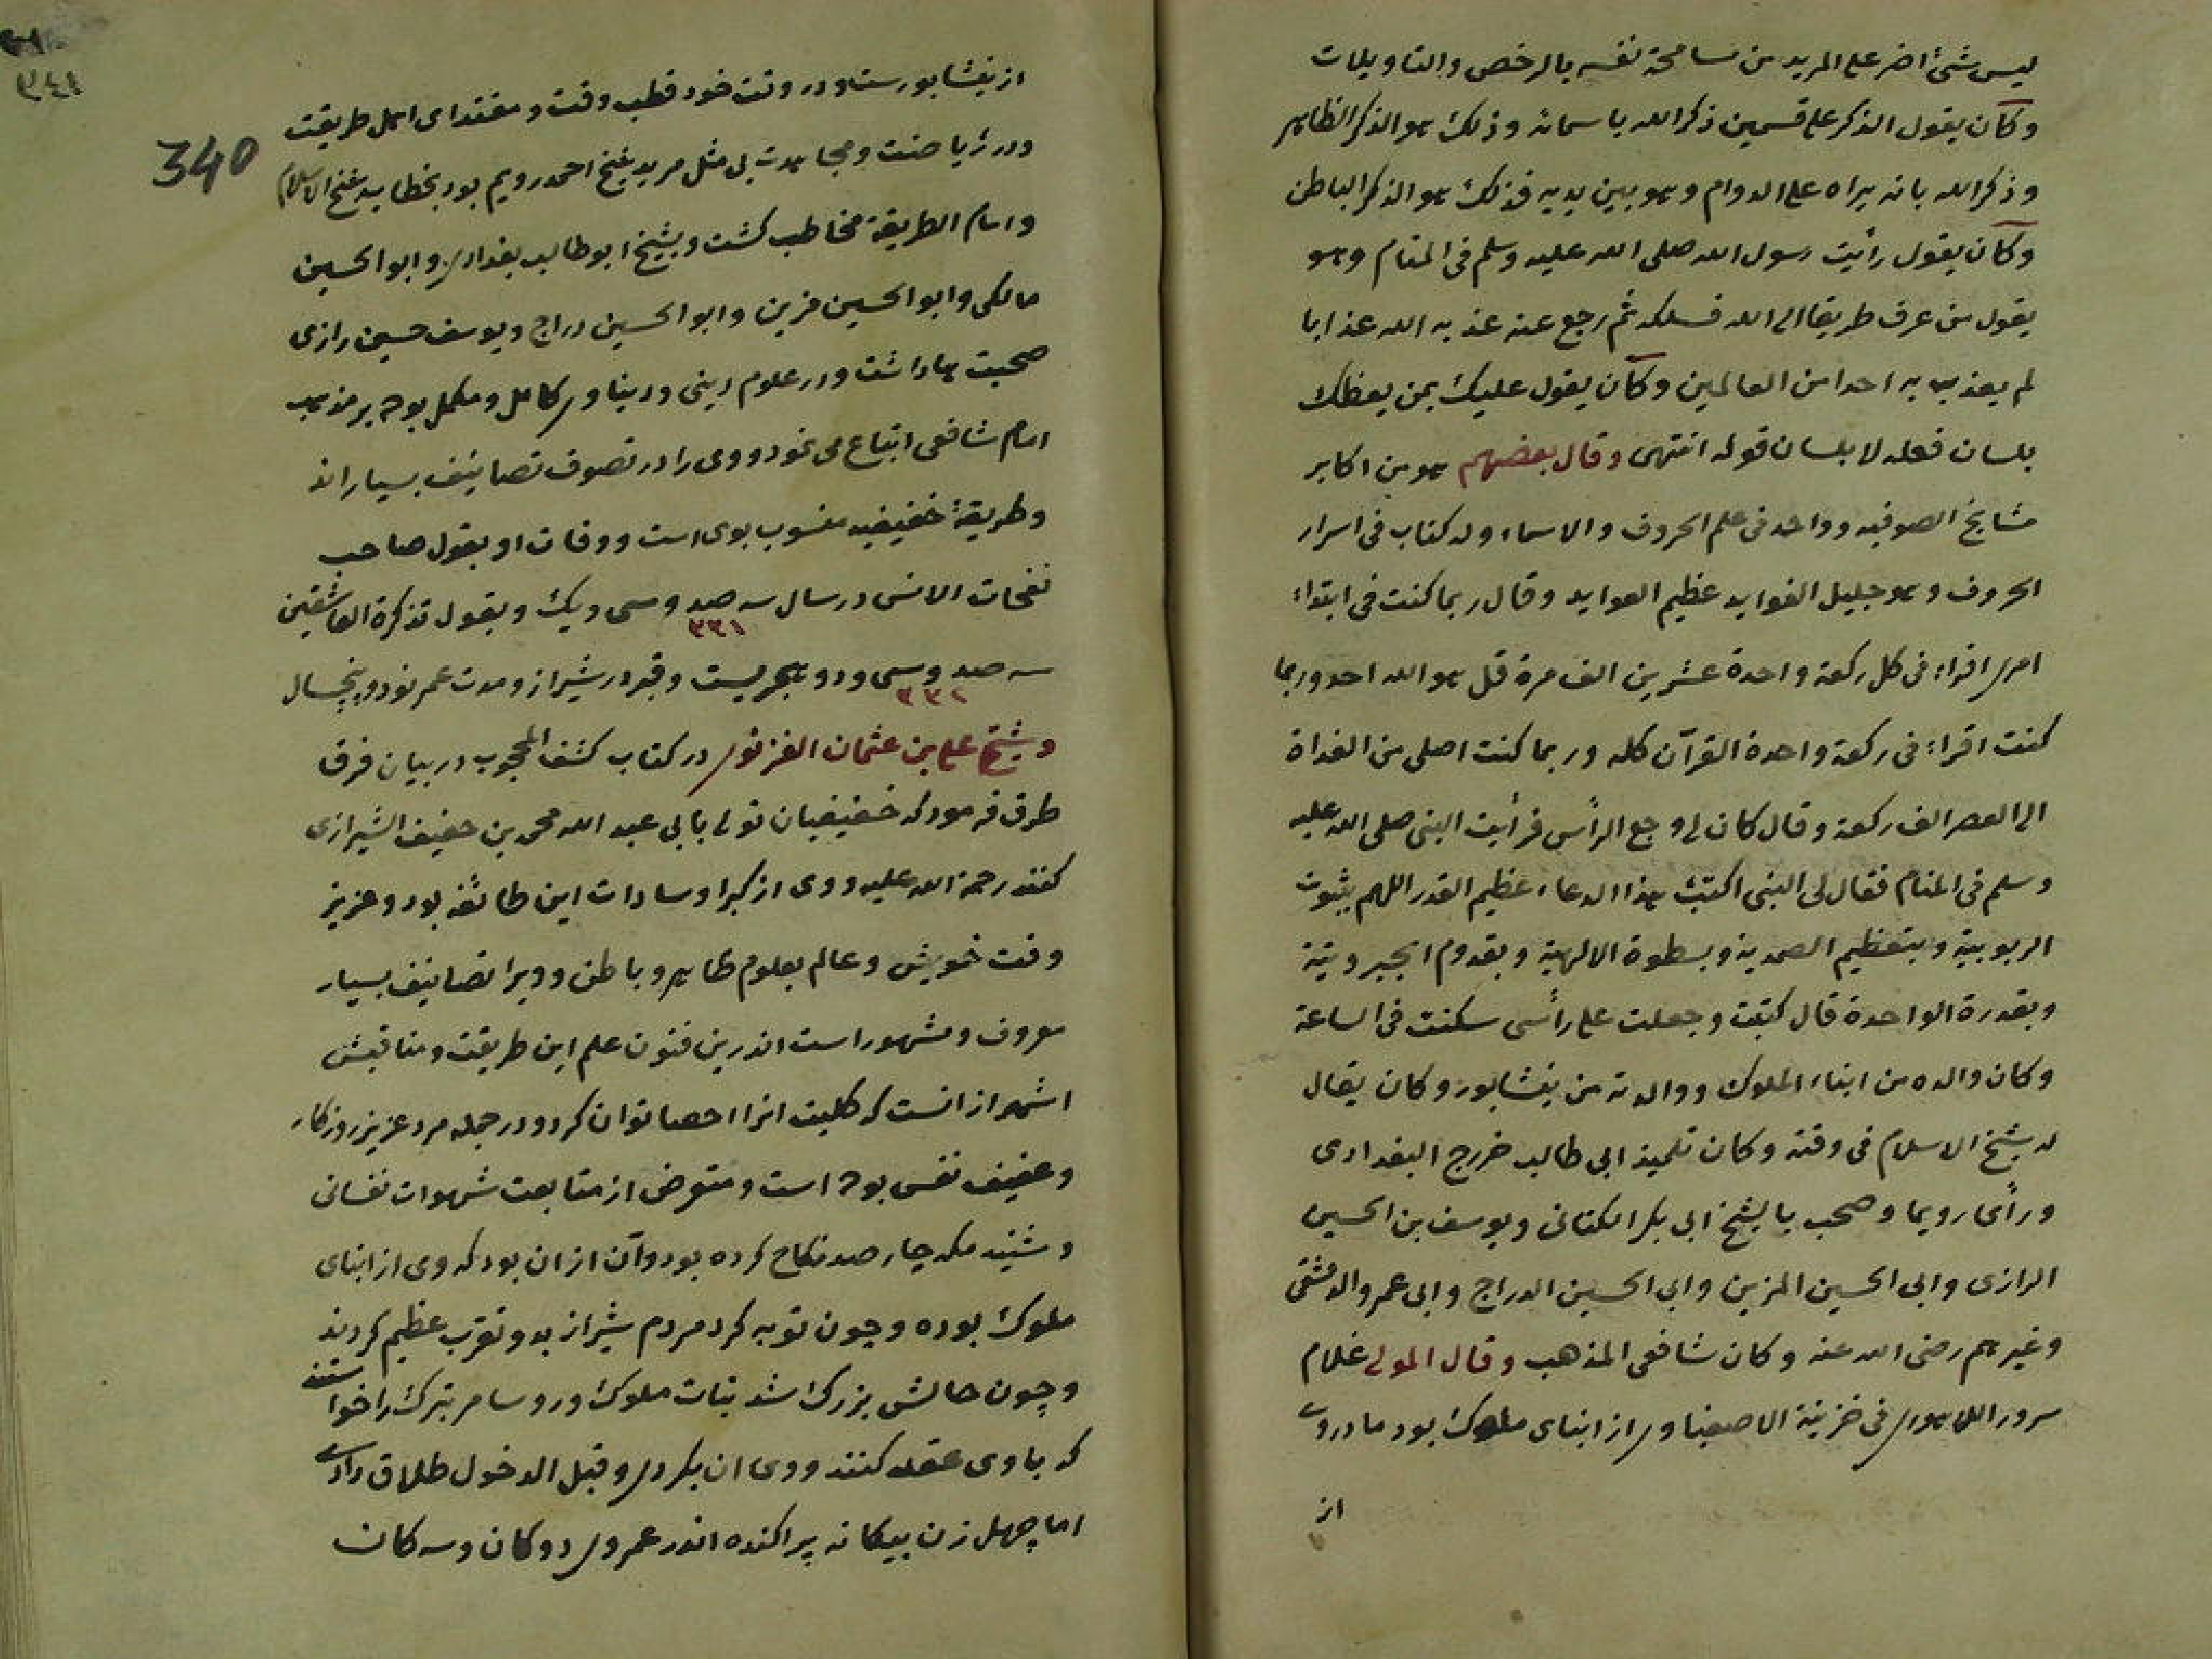 ليس شئ اضر على المريد من مسامحة نفسه بالرخص والتاويلات
وكان يقول الذكر على قسمين ذكر الله باسمائه وذلك هو الذكر الظاهر
وذكر الله بانه يراه على الدوام وهو بين يديه فذلك هو الذكر الباطن
وكان يقول رأيت رسول الله صلى الله عليه وسلم فى المنام وهو
يقول من عرف طريقا الى الله فسلكه ثم رجع عنه عذبه الله عذابا
لم يعذب به احدا من العالمين وكان يقول عليك بمن يعظك
بلسان فعله لا بلسان قوله انتهى وقال بعضهم هو من اكابر
مشايخ الصوفيه وواحد فى علم الحروف والاسماء وله كتاب فى اسرار
الحروف وهو جليل الفوايد عظيم العوايد وقال ربما كنت فى ابتداء
امرى اقراء فى كل ركعة واحدة عشرين الف مرة قل هو الله احد وربما
كنت اقراء فى ركعة واحدة القرآن كله وربما كنت اصلى من الغداة
الى العصر الف ركعة وقال كان لى وجع الرأس فرأيت النبى صلى الله عليه
وسلم فى المنام فقال لى النبى اكتب هذا الدعاء عظيم القدر اللهم بثبوت
الربوبية وبتعظيم الصمدية وبسطوة الالهية وبقدوم الجبروتية
وبقدرة الواحدة قال كتبت وجعلت على رأسى سكنت فى الساعة
وكان والده من ابناء الملوك ووالدته من نيشابور وكان يقال
له شيخ الاسلام فى وقته وكان تلميذ ابى طالب خزرج البغدادى
ورأى رويما وصحب بالشيخ ابى بكر الكتانى ويوسف بن الحسين
الرازى وابى الحسين المزين وابى الحسين الدراج وابى عمرو الدمشقى
وغيرهم رضى الله عنه وكان شافعى المذهب وقال المولى غلام
سرور اللاهورى فى خزينة الاصفيا وى از ابناى ملوك بود مادروى
از
340
٣٤١
از نيشابورست ودر وقت خود قطب وقت ومقتداى اهل طريقت
ودر رياضت ومجاهدت بى مثل مريد شيخ احمد رويم بود بخطاب شيخ الاسلام
وامام الطريقة مخاطب كشت وبشيخ ابو طالب بغدادى وابو الحسين
مالكى وابو الحسين مزين وابو الحسين دراج ويوسف حسين رازى
صحبت ها داشت ودر علوم دينى ودنياوى كامل ومكمل بوده بر مذهب
امام شافعى اتباع مى نمود ووى را در تصوف تصانيف بسيار اند
وطريقۀ خفيفيه منسوب بوى است ووفات او بقول صاحب
نفحات الانس در سال سه صد وسى ويك وبقول تذكرة العاشقين
٣٣١
سه صد وسى ودو هجريست وقبر در شيراز ومدت عمر نود وپنج سال
٣٣٢
وشيخ على بن عثمان الغزنوى در كتاب كشف المحجوب در بيان فرق
طرق فرمود كه خفيفيان تولى بابى عبد الله محمد بن خفيف الشيرازى
كنند رحمة الله عليه ووى از كبرا وسادات اين طائفه بود وعزيز
وقت خويش وعالم بعلوم ظاهر وباطن وويرا تصانيف بسيار
معروف ومشهور است اندرين فنون علم اين طريقت ومناقبش
اشهر از انست كه كليت انرا احصا توان كرد ودر جمله مرد عزيز روزكار
وعفيف نفس بوده است ومتعرض از متابعت شهوات نفسانى
وشنيدم كه چهار صد نكاح كرده بود وآن از ان بود كه وى از ابناى
ملوك بوده وچون توبه كرد مردم شيراز بدو تقرب عظيم كردند
وچون حالش بزرك شد بنات ملوك وروسا مر تبرك را خواستند
كه با وى عقد كنند ووى ان بكردى وقبل الدخول طلاق دادى
اما چهل زن بيكانه پراكنده اندر عمر وى دوكان وسه كان